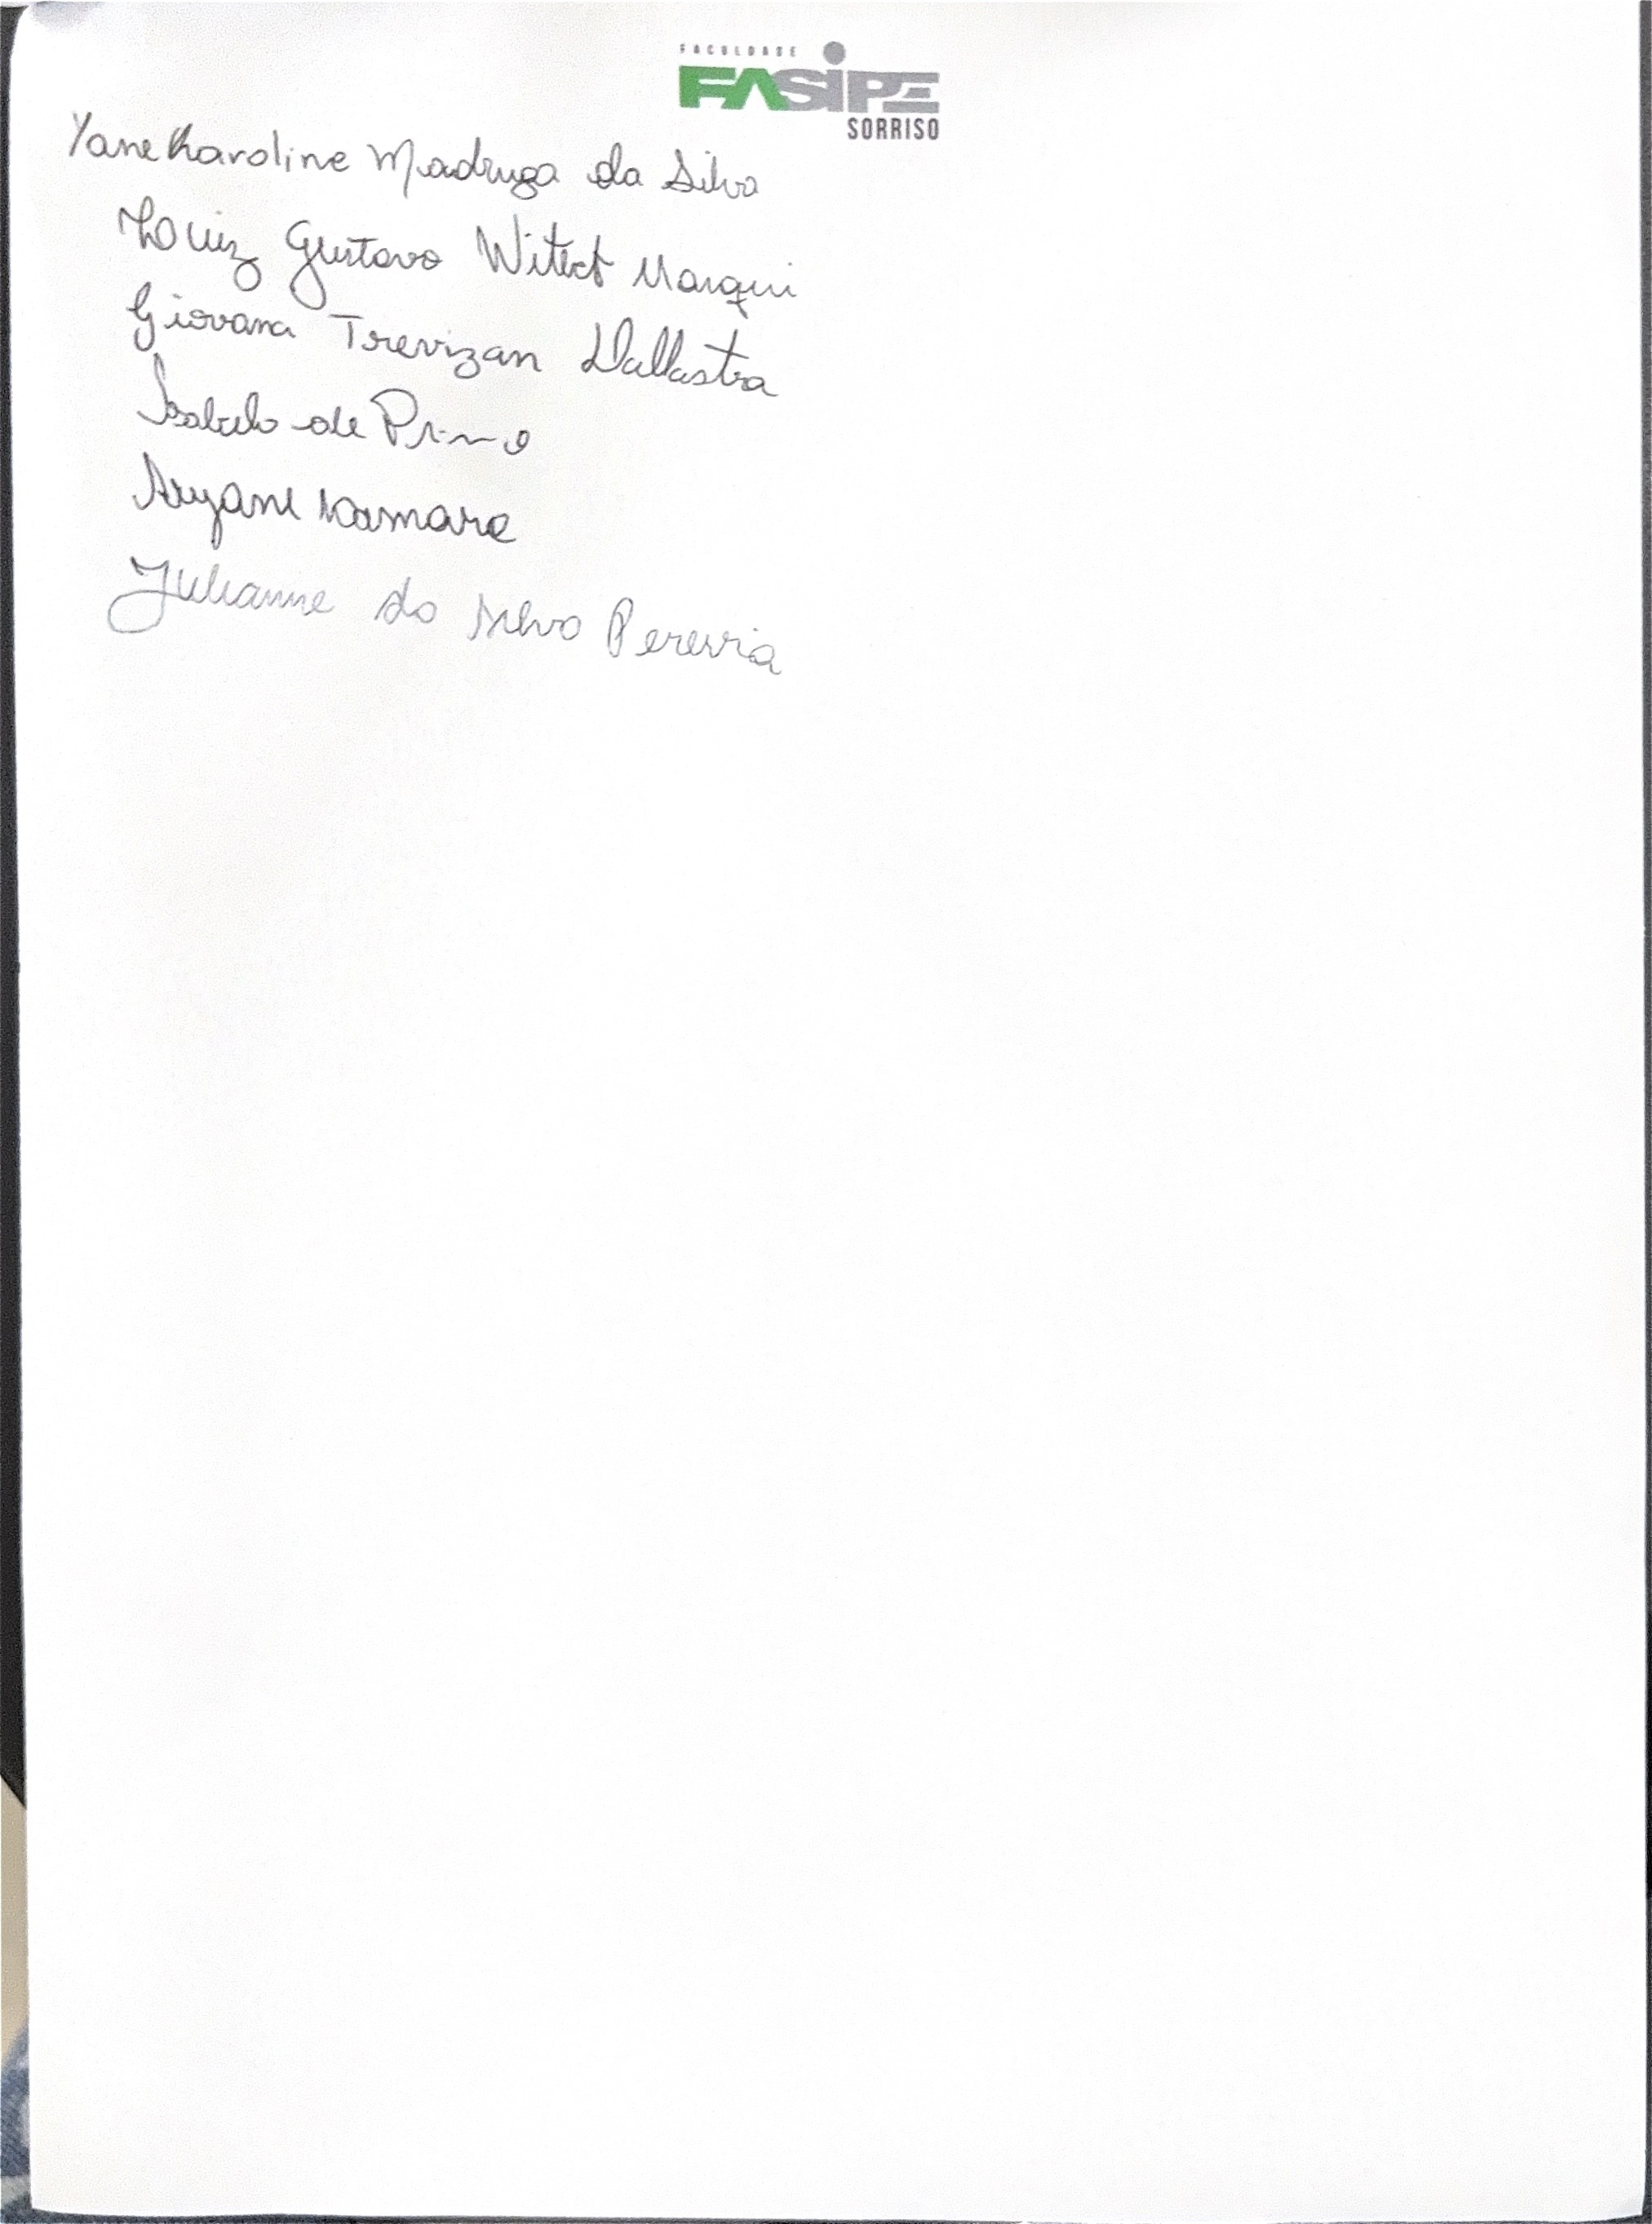 FACULDADE
FASIPE
SORRISO
Yane Karoline Madruga da Silva
Luiz Gustavo Marqui
Giovana Trevizan Dallastra
Isabela de Primo
Aryane
Julianne da Silva Pereira